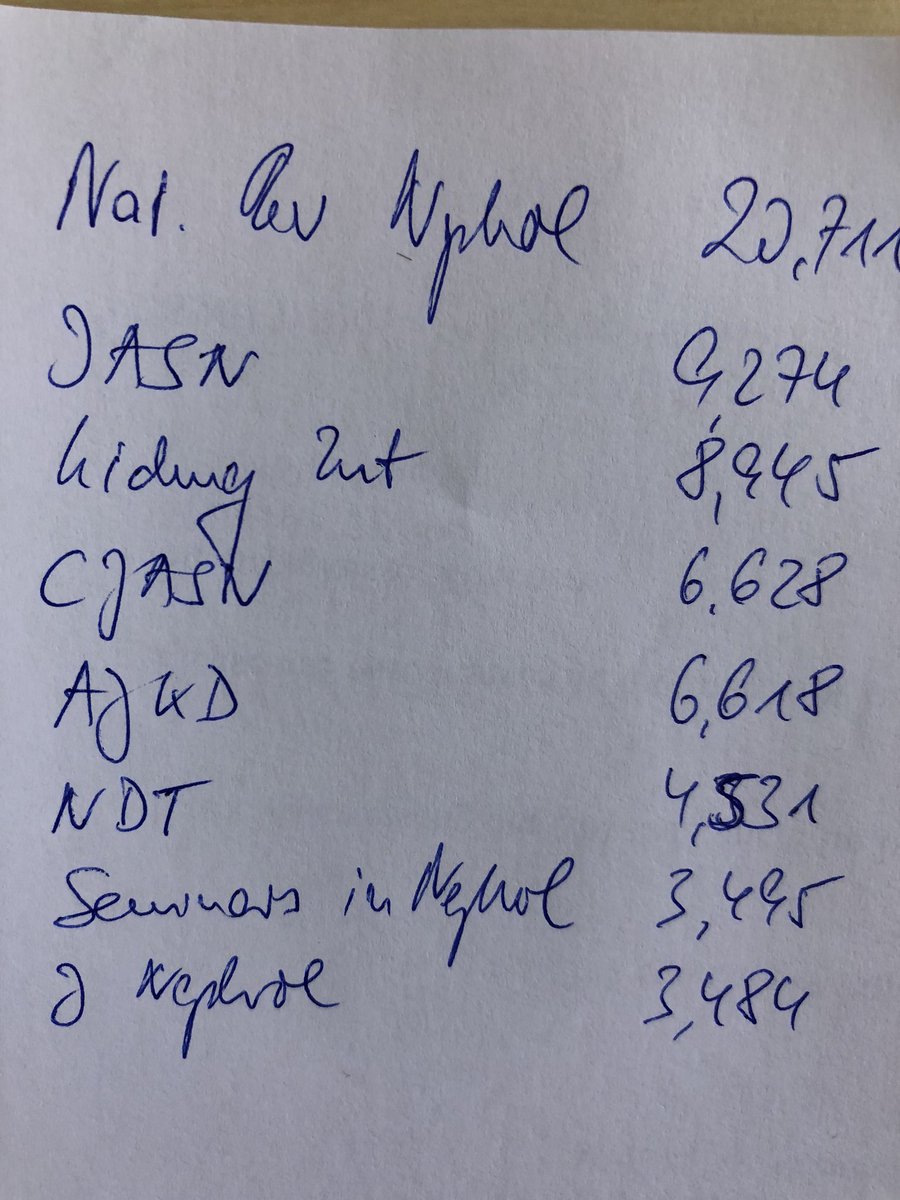 Nat. Rev Nephrol 20,711
JASN 9,274
Kidney Int 8,945
CJASN 6.628
AJKD 6,618
NDT 4,531
Seminars in Nephrol 3,495
J Nephrol 3,484